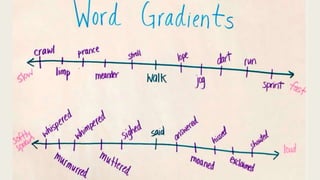 Word Gradients
crawl prance stroll lope dart run
slow limp meander walk jog sprint fast
softly spoken whispered whimpered sighed said answered hissed shouted loud
murmurred muttered moaned exclaimed